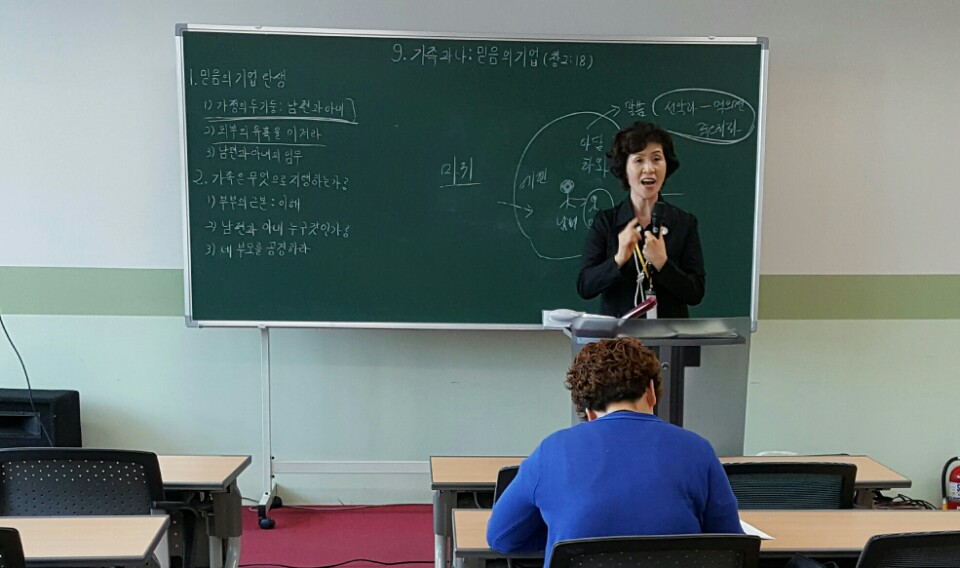 9. 가족과 나 : 믿음의 기업 (창2:18)
1. 믿음의 기업 탄생
1) 가정의 두기둥 : 남편과 아내
2) 외부의 유혹을 이겨라
3) 남편과 아내의 임무
2. 가족은 무엇으로 지탱하는가?
1) 부부의 근본 : 이해
2) 남편과 아내 누구것인가?
3) 네 부모를 공경하라
미혹
에덴
아담
하와
말씀
선악과 - 먹으면